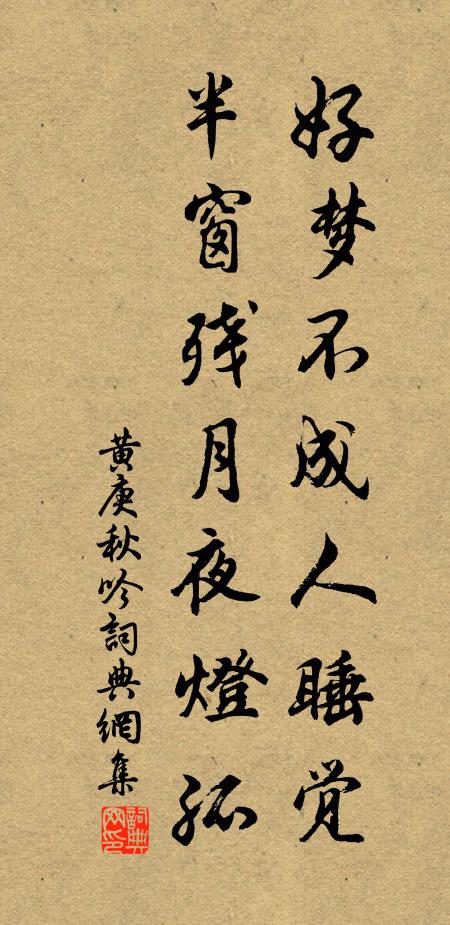 好梦不成人睡觉
半窗残月夜燈孤
黄庚秋吟詞典網集
詞典网印